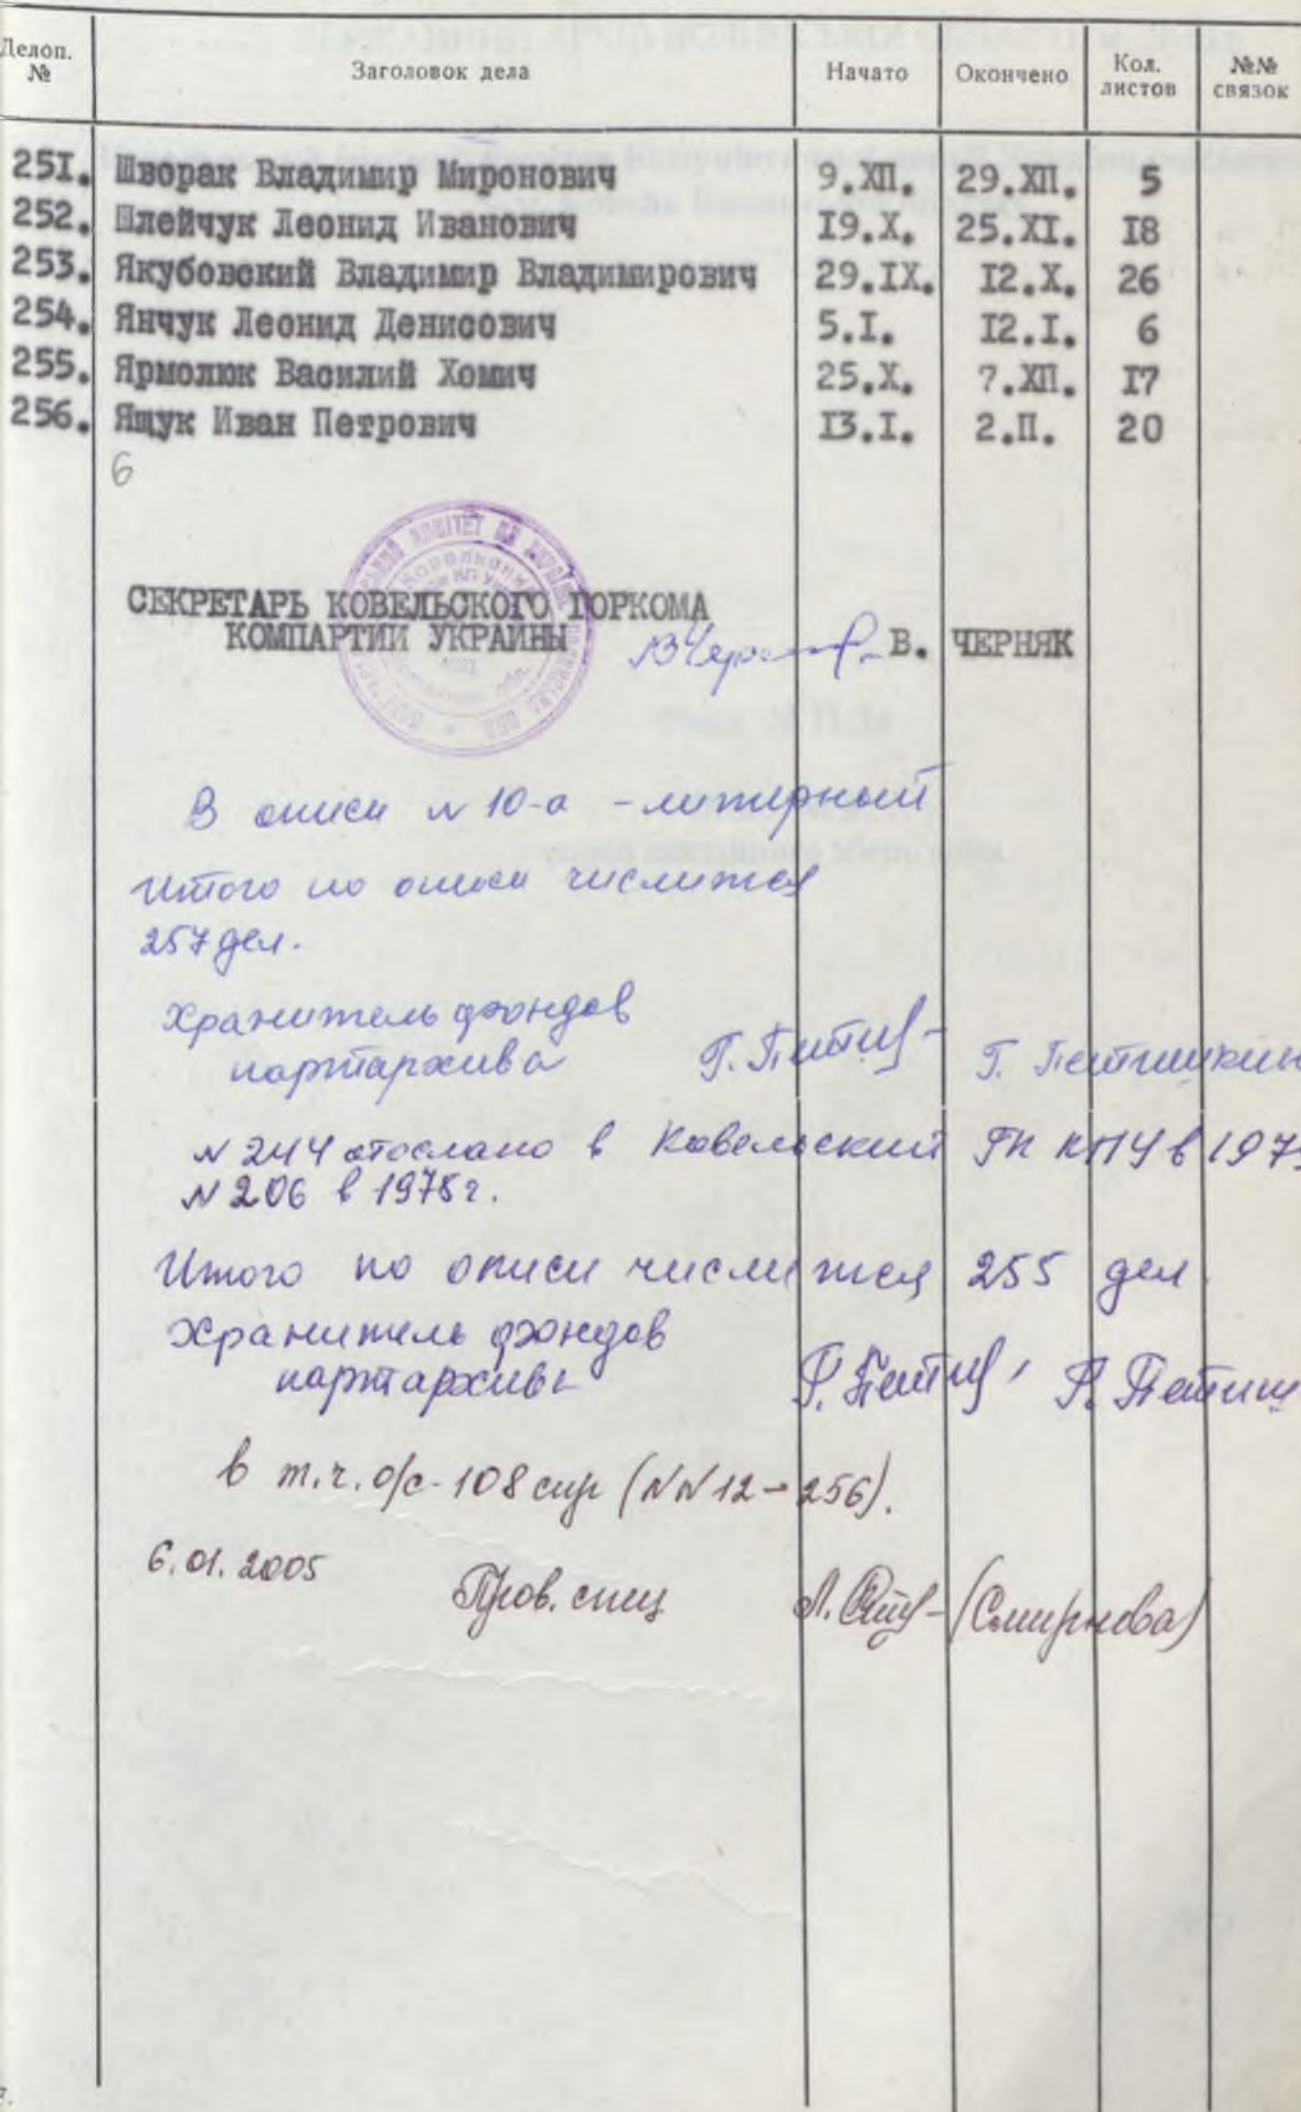 Делоп. №
Заголовок дела
Начато
Окончено
Кол. листов
№№ связок
251. Шворак Владимир Миронович 9.ХП. 29.ХП. 5
252. Шлейчук Леонид Иванович I9.X. 25.XI. I8
253. Якубовский Владимир Владимирович 29.IX. I2.X. 26
254. Янчук Леонид Денисович 5.I. I2.I. 6
255. Ярмолюк Василий Хомич 25.X. 7.ХП. I7
256. Ящук Иван Петрович I3.I. 2.П. 20
6
СЕКРЕТАРЬ КОВЕЛЬСКОГО ГОРКОМА
КОМПАРТИИ УКРАИНЫ В. ЧЕРНЯК
В описи № 10-а - литерный
Итого по описи числится
257 дел.
Хранитель фондов
партархива
№ 244 отослано в Ковельский ГК КПУ в 197
№ 206 в 1978 г.
Итого по описи числится 255 дел
Хранитель фондов
партархива
в т.ч. о/с - 108 спр (NN 12 - 256).
6.01.2005 Пров. спец (Смирнова)